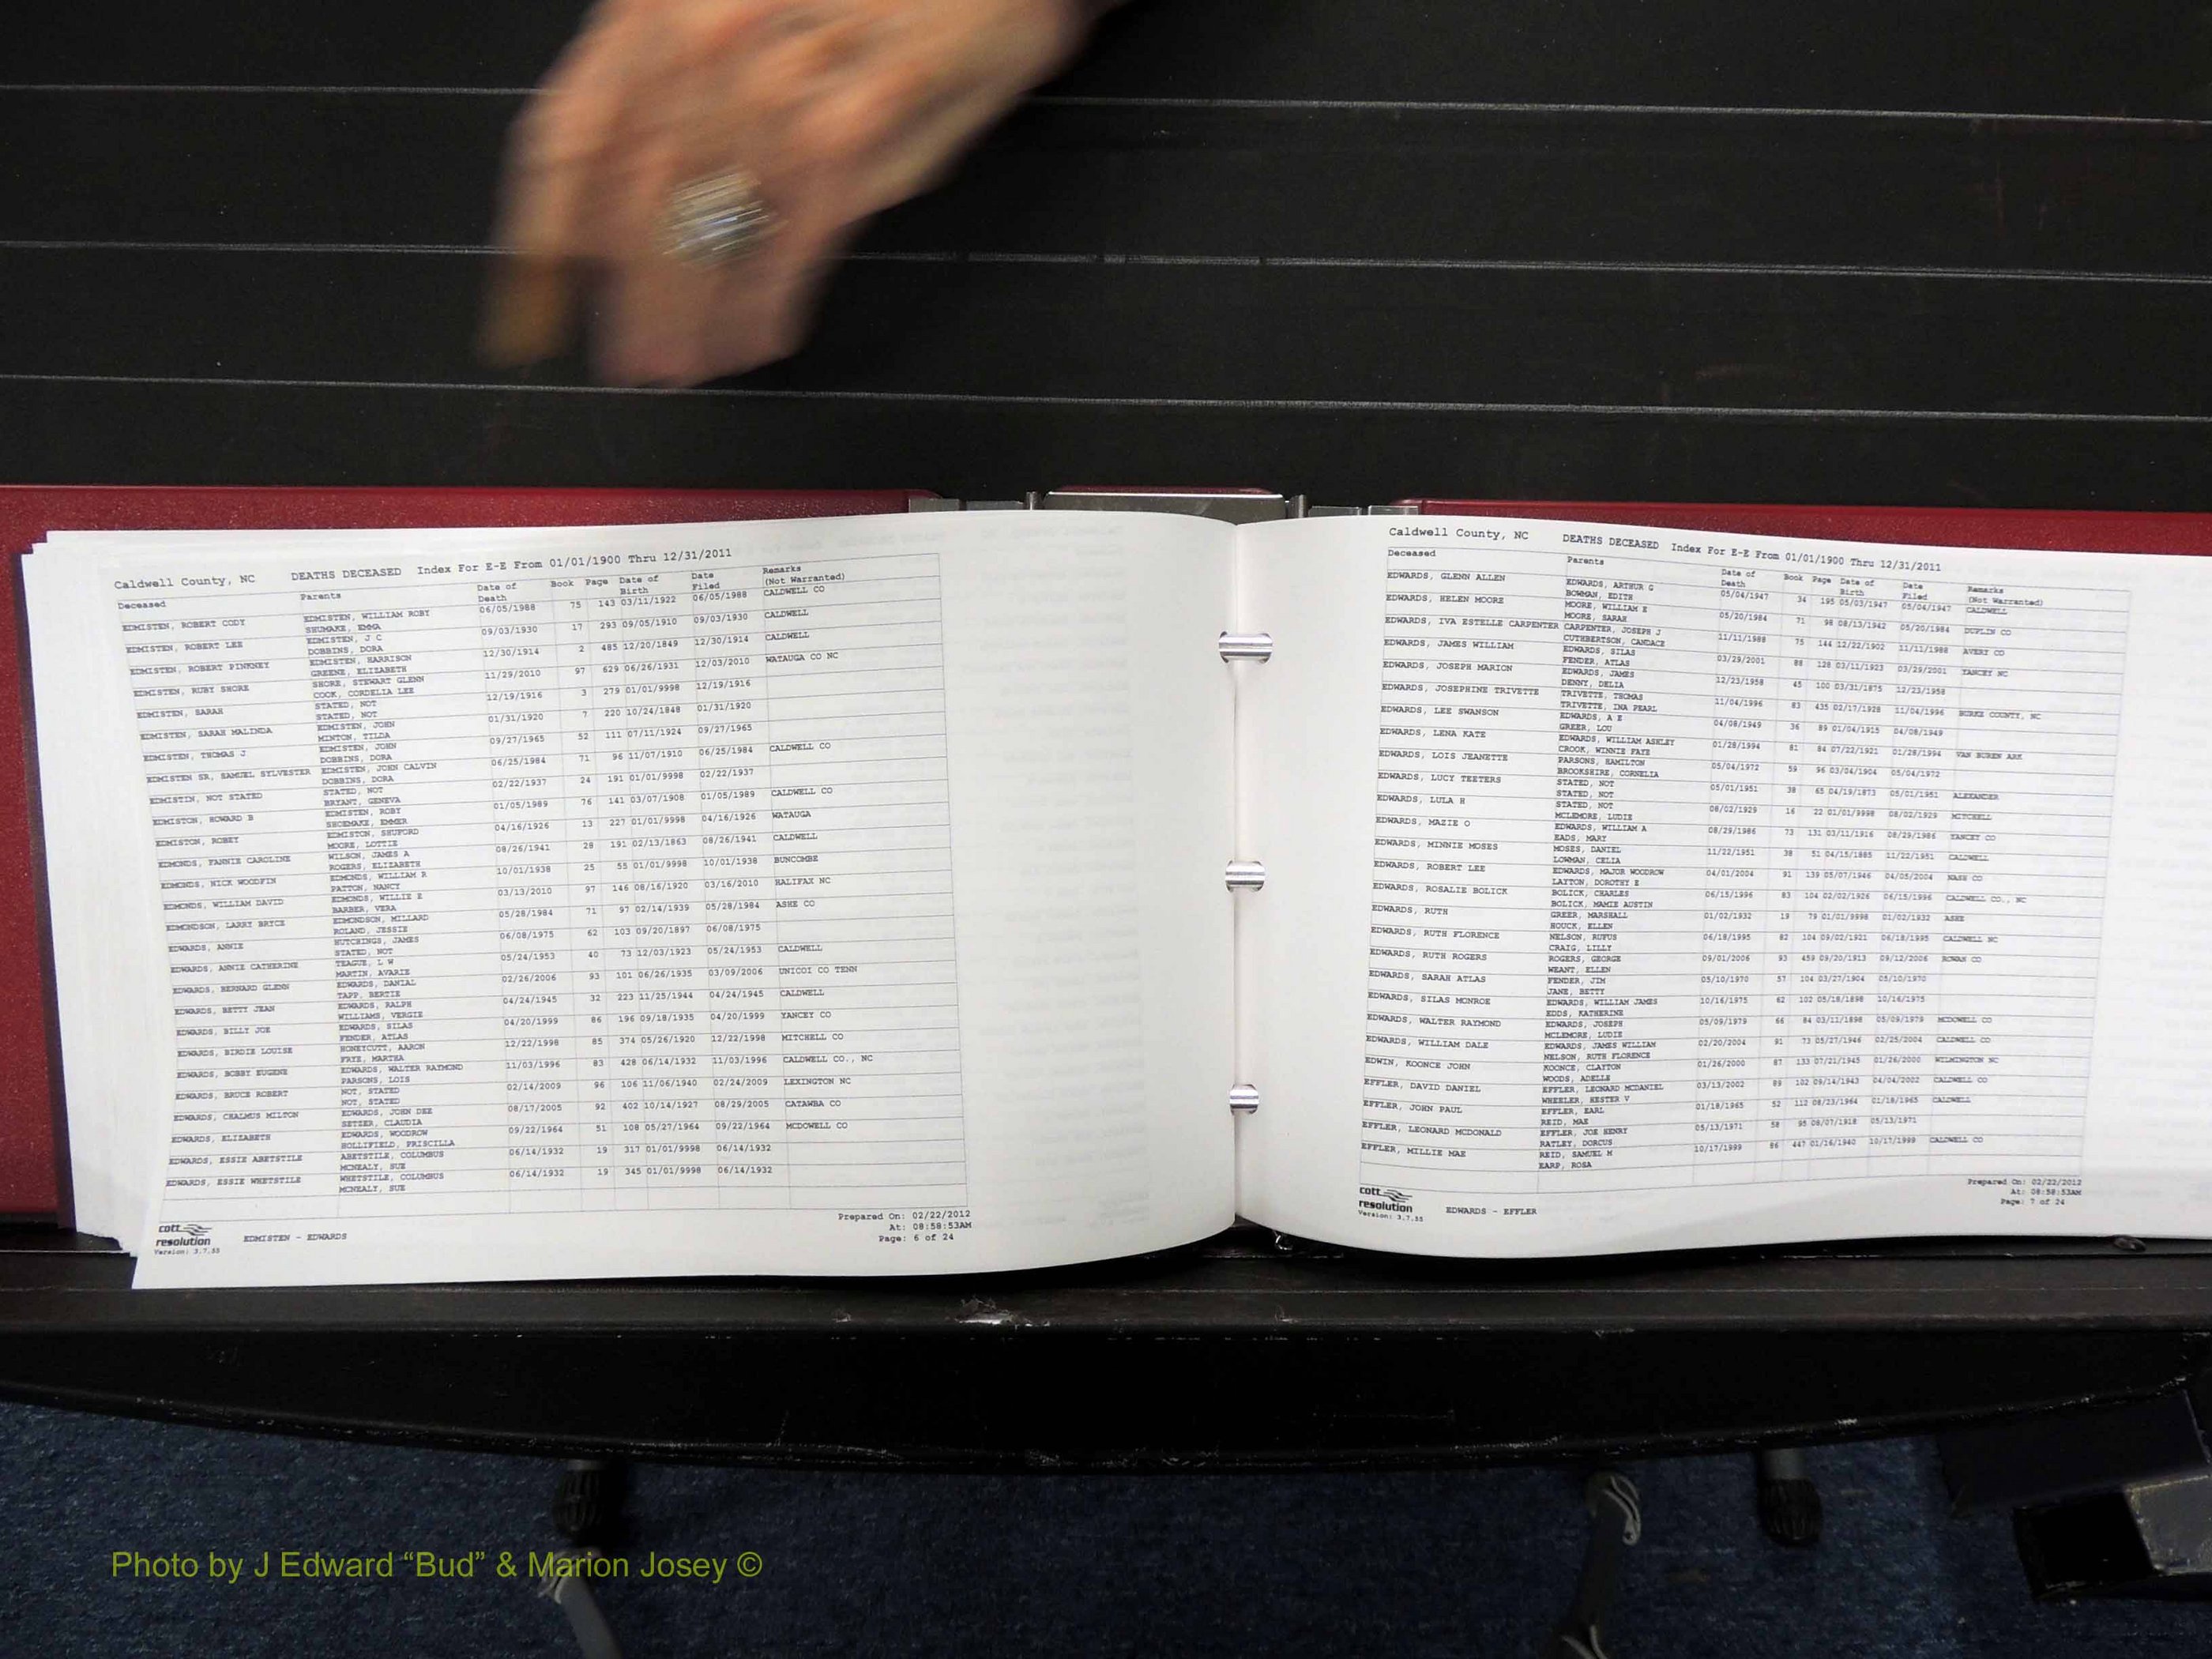 Caldwell County, NC DEATHS DECEASED Index For E-E From 01/01/1900 Thru 12/31/2011
Deceased Parents Date of Death Book Page Date of Birth Date Filed Remarks (Not Warranted)
EDMISTEN, ROBERT CODY EDMISTEN, WILLIAM ROBY 06/05/1988 75 143 03/11/1922 06/05/1988 CALDWELL CO
SHUMAKE, EMMA
EDMISTEN, ROBERT LEE EDMISTEN, J C 09/03/1930 17 293 09/05/1910 09/03/1930 CALDWELL
DOBBINS, DORA
EDMISTEN, ROBERT PINKNEY EDMISTEN, HARRISON 12/30/1914 2 485 12/20/1849 12/30/1914 CALDWELL
GREENE, ELIZABETH
EDMISTEN, RUBY SHORE SHORE, STEWART GLENN 11/29/2010 97 629 06/26/1931 12/03/2010 WATAUGA CO NC
COOK, CORDELIA LEE
EDMISTEN, SARAH STATED, NOT 12/19/1916 3 279 01/01/9998 12/19/1916
STATED, NOT
EDMISTEN, SARAH MALINDA EDMISTEN, JOHN 01/31/1920 7 220 10/24/1848 01/31/1920
MINTON, TILDA
EDMISTEN, THOMAS J EDMISTEN, JOHN 09/27/1965 52 111 07/11/1924 09/27/1965
DOBBINS, DORA
EDMISTEN SR, SAMUEL SYLVESTER EDMISTEN, JOHN CALVIN 06/25/1984 71 96 11/07/1910 06/25/1984 CALDWELL CO
DOBBINS, DORA
EDMISTIN, NOT STATED STATED, NOT 02/22/1937 24 191 01/01/9998 02/22/1937
BRYANT, GENEVA
EDMISTON, HOWARD B EDMISTEN, ROBY 01/05/1989 76 141 03/07/1908 01/05/1989 CALDWELL CO
SHOEMAKE, EMMER
EDMISTON, ROBEY EDMISTON, SHUFORD 04/16/1926 13 227 01/01/9998 04/16/1926 WATAUGA
MOORE, LOTTIE
EDMONDS, FANNIE CAROLINE WILSON, JAMES A 08/26/1941 28 191 02/13/1863 08/26/1941 CALDWELL
ROGERS, ELIZABETH
EDMONDS, NICK WOODFIN EDMONDS, WILLIAM R 10/01/1938 25 55 01/01/9998 10/01/1938 BUNCOMBE
PATTON, NANCY
EDMONDS, WILLIAM DAVID EDMONDS, WILLIE E 03/13/2010 97 146 08/16/1920 03/16/2010 HALIFAX NC
BARBER, VERA
EDMONDSON, LARRY BRYCE EDMONDSON, MILLARD 05/28/1984 71 97 02/14/1939 05/28/1984 ASHE CO
ROLAND, JESSIE
EDWARDS, ANNIE HUTCHINGS, JAMES 06/08/1975 62 103 09/20/1897 06/08/1975
STATED, NOT
EDWARDS, ANNIE CATHERINE TEAGUE, L W 05/24/1953 40 73 12/03/1923 05/24/1953 CALDWELL
MARTIN, AVARIE
EDWARDS, BERNARD GLENN EDWARDS, DANIAL 02/26/2006 93 101 06/26/1935 03/09/2006 UNICOI CO TENN
TAPP, BERTIE
EDWARDS, BETTY JEAN EDWARDS, RALPH 04/24/1945 32 223 11/25/1944 04/24/1945 CALDWELL
WILLIAMS, VERGIE
EDWARDS, BILLY JOE EDWARDS, SILAS 04/20/1999 86 196 09/18/1935 04/20/1999 YANCEY CO
FENDER, ATLAS
EDWARDS, BIRDIE LOUISE HONEYCUTT, AARON 12/22/1998 85 374 05/26/1920 12/22/1998 MITCHELL CO
FRYE, MARTHA
EDWARDS, BOBBY EUGENE EDWARDS, WALTER RAYMOND 11/03/1996 83 428 06/14/1932 11/03/1996 CALDWELL CO., NC
PARSONS, LOIS
EDWARDS, BRUCE ROBERT NOT, STATED 02/14/2009 96 106 11/06/1940 02/24/2009 LEXINGTON NC
NOT, STATED
EDWARDS, CHALMUS MILTON EDWARDS, JOHN DEE 08/17/2005 92 402 10/14/1927 08/29/2005 CATAWBA CO
SETZER, CLAUDIA
EDWARDS, ELIZABETH EDWARDS, WOODROW 09/22/1964 51 108 05/27/1964 09/22/1964 MCDOWELL CO
HOLLIFIELD, PRISCILLA
EDWARDS, ESSIE ABETSTILE ABETSTILE, COLUMBUS 06/14/1932 19 317 01/01/9998 06/14/1932
MCNEALY, SUE
EDWARDS, ESSIE WHETSTILE WHETSTILE, COLUMBUS 06/14/1932 19 345 01/01/9998 06/14/1932
MCNEALY, SUE
cott resolution Version: 3.7.55
EDMISTEN - EDWARDS
Prepared On: 02/22/2012
At: 08:58:53AM
Page: 6 of 24
Caldwell County, NC DEATHS DECEASED Index For E-E From 01/01/1900 Thru 12/31/2011
Deceased Parents Date of Death Book Page Date of Birth Date Filed Remarks (Not Warranted)
EDWARDS, GLENN ALLEN EDWARDS, ARTHUR G 05/04/1947 34 195 05/03/1947 05/04/1947 CALDWELL
BOWMAN, EDITH
EDWARDS, HELEN MOORE MOORE, WILLIAM E 05/20/1984 71 98 08/13/1942 05/20/1984 DUPLIN CO
MOORE, SARAH
EDWARDS, IVA ESTELLE CARPENTER CARPENTER, JOSEPH J 11/11/1988 75 144 12/22/1902 11/11/1988 AVERY CO
CUTHBERTSON, CANDACE
EDWARDS, JAMES WILLIAM EDWARDS, SILAS 03/29/2001 88 128 03/11/1923 03/29/2001 YANCEY NC
FENDER, ATLAS
EDWARDS, JOSEPH MARION EDWARDS, JAMES 12/23/1958 45 100 03/31/1875 12/23/1958
DENNY, DELIA
EDWARDS, JOSEPHINE TRIVETTE TRIVETTE, THOMAS 11/04/1996 83 435 02/17/1928 11/04/1996 BURKE COUNTY, NC
TRIVETTE, INA PEARL
EDWARDS, LEE SWANSON EDWARDS, A E 04/08/1949 36 89 01/04/1915 04/08/1949
GREER, LOU
EDWARDS, LENA KATE EDWARDS, WILLIAM ASHLEY 01/28/1994 81 84 07/22/1921 01/28/1994 VAN BUREN ARK
CROOK, WINNIE FAYE
EDWARDS, LOIS JEANETTE PARSONS, HAMILTON 05/04/1972 59 96 03/04/1904 05/04/1972
BROOKSHIRE, CORNELIA
EDWARDS, LUCY TEETERS STATED, NOT 05/01/1951 38 65 04/19/1873 05/01/1951 ALEXANDER
STATED, NOT
EDWARDS, LULA H STATED, NOT 08/02/1929 16 22 01/01/9998 08/02/1929 MITCHELL
MCLEMORE, LUDIE
EDWARDS, MAZIE O EDWARDS, WILLIAM A 08/29/1986 73 131 03/11/1916 08/29/1986 YANCEY CO
EADS, MARY
EDWARDS, MINNIE MOSES MOSES, DANIEL 11/22/1951 38 51 04/15/1885 11/22/1951 CALDWELL
LOWMAN, CELIA
EDWARDS, ROBERT LEE EDWARDS, MAJOR WOODROW 04/01/2004 91 139 05/07/1946 04/05/2004 NASH CO
LAYTON, DOROTHY E
EDWARDS, ROSALIE BOLICK BOLICK, CHARLES 06/15/1996 83 104 02/02/1926 06/15/1996 CALDWELL CO., NC
BOLICK, MAMIE AUSTIN
EDWARDS, RUTH GREER, MARSHALL 01/02/1932 19 79 01/01/9998 01/02/1932 ASHE
HOUCK, ELLEN
EDWARDS, RUTH FLORENCE NELSON, RUFUS 06/18/1995 82 104 09/02/1921 06/18/1995 CALDWELL NC
CRAIG, LILLY
EDWARDS, RUTH ROGERS ROGERS, GEORGE 09/01/2006 93 459 09/20/1913 09/12/2006 ROWAN CO
WEANT, ELLEN
EDWARDS, SARAH ATLAS FENDER, JIM 05/10/1970 57 104 03/27/1904 05/10/1970
JANE, BETTY
EDWARDS, SILAS MONROE EDWARDS, WILLIAM JAMES 10/16/1975 62 102 05/18/1898 10/16/1975
EDDS, KATHERINE
EDWARDS, WALTER RAYMOND EDWARDS, JOSEPH 05/09/1979 66 84 03/11/1898 05/09/1979 MCDOWELL CO
MCLEMORE, LUDIE
EDWARDS, WILLIAM DALE EDWARDS, JAMES WILLIAM 02/20/2004 91 73 05/27/1946 02/25/2004 CALDWELL CO
NELSON, RUTH FLORENCE
EDWIN, KOONCE JOHN KOONCE, CLAYTON 01/26/2000 87 133 07/21/1945 01/26/2000 WILMINGTON NC
WOODS, ADELLE
EFFLER, DAVID DANIEL EFFLER, LEONARD MCDANIEL 03/13/2002 89 102 09/14/1943 04/04/2002 CALDWELL CO
WHEELER, HESTER V
EFFLER, JOHN PAUL EFFLER, EARL 01/18/1965 52 112 08/23/1964 01/18/1965 CALDWELL
REID, MAE
EFFLER, LEONARD MCDONALD EFFLER, JOE HENRY 05/13/1971 58 95 08/07/1918 05/13/1971
RATLEY, DORCUS
EFFLER, MILLIE MAE REID, SAMUEL M 10/17/1999 86 447 01/16/1940 10/17/1999 CALDWELL CO
EARP, ROSA
cott resolution Version: 3.7.55
EDWARDS - EFFLER
Prepared On: 02/22/2012
At: 08:58:53AM
Page: 7 of 24
Photo by J Edward “Bud” & Marion Josey ©